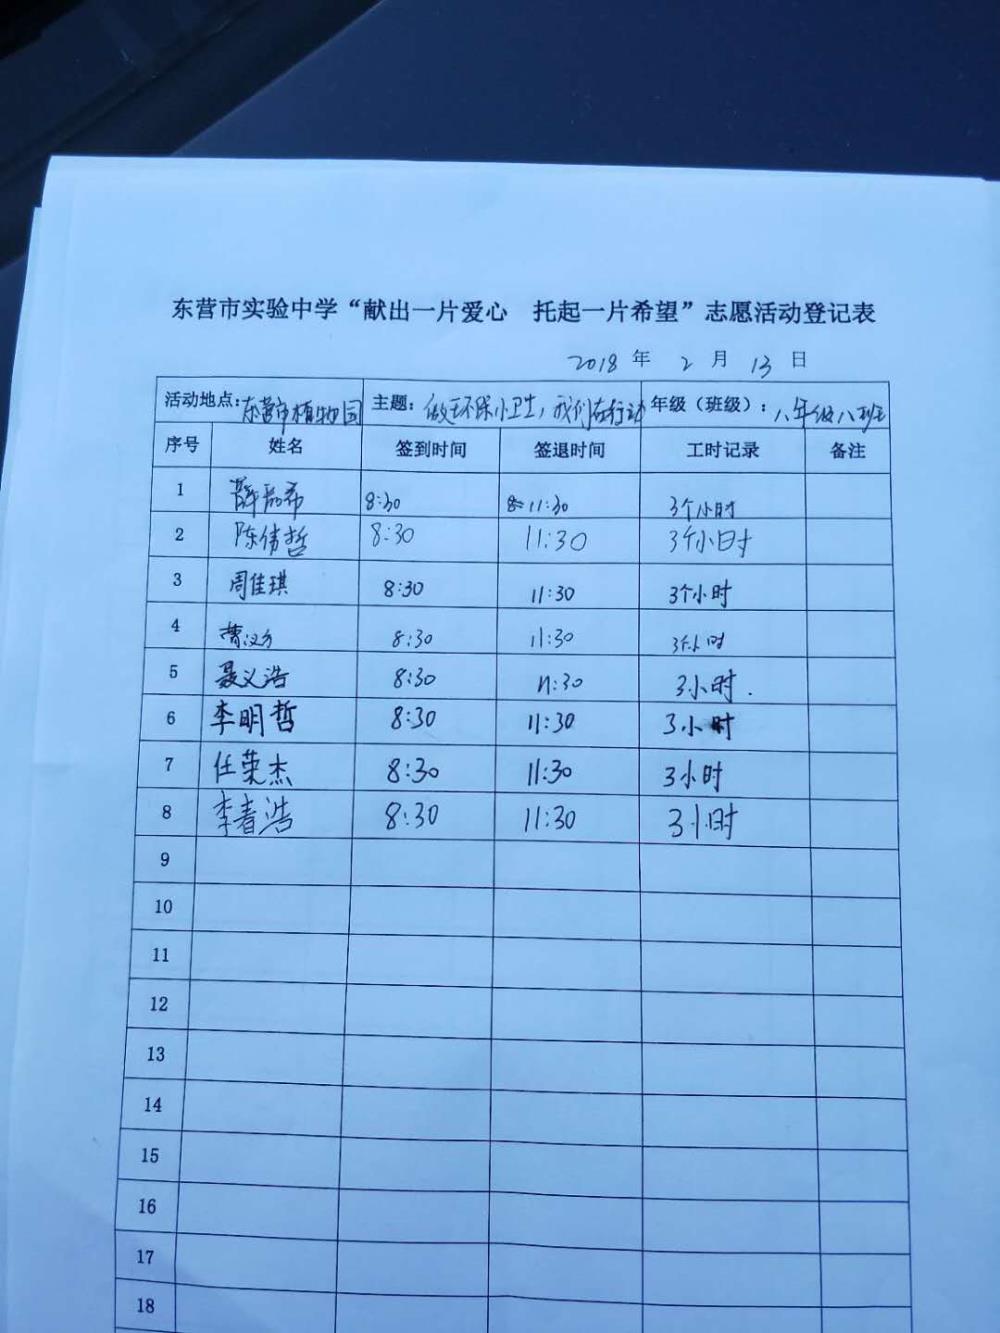 东营市实验中学“献出一片爱心 托起一片希望”志愿活动登记表
2018 年 2 月 13 日
活动地点:东营市植物园 主题:做环保小卫生,我们在行动 年级(班级):八年级八班
序号 姓名 签到时间 签退时间 工时记录 备注
1 薛 希 8:30 11:30 3个小时
2 陈伟哲 8:30 11:30 3个小时
3 周佳琪 8:30 11:30 3个小时
4 曹汉方 8:30 11:30 3个小时
5 聂义浩 8:30 11:30 3小时.
6 李明哲 8:30 11:30 3小时
7 任荣杰 8:30 11:30 3小时
8 李春浩 8:30 11:30 3小时
9
10
11
12
13
14
15
16
17
18